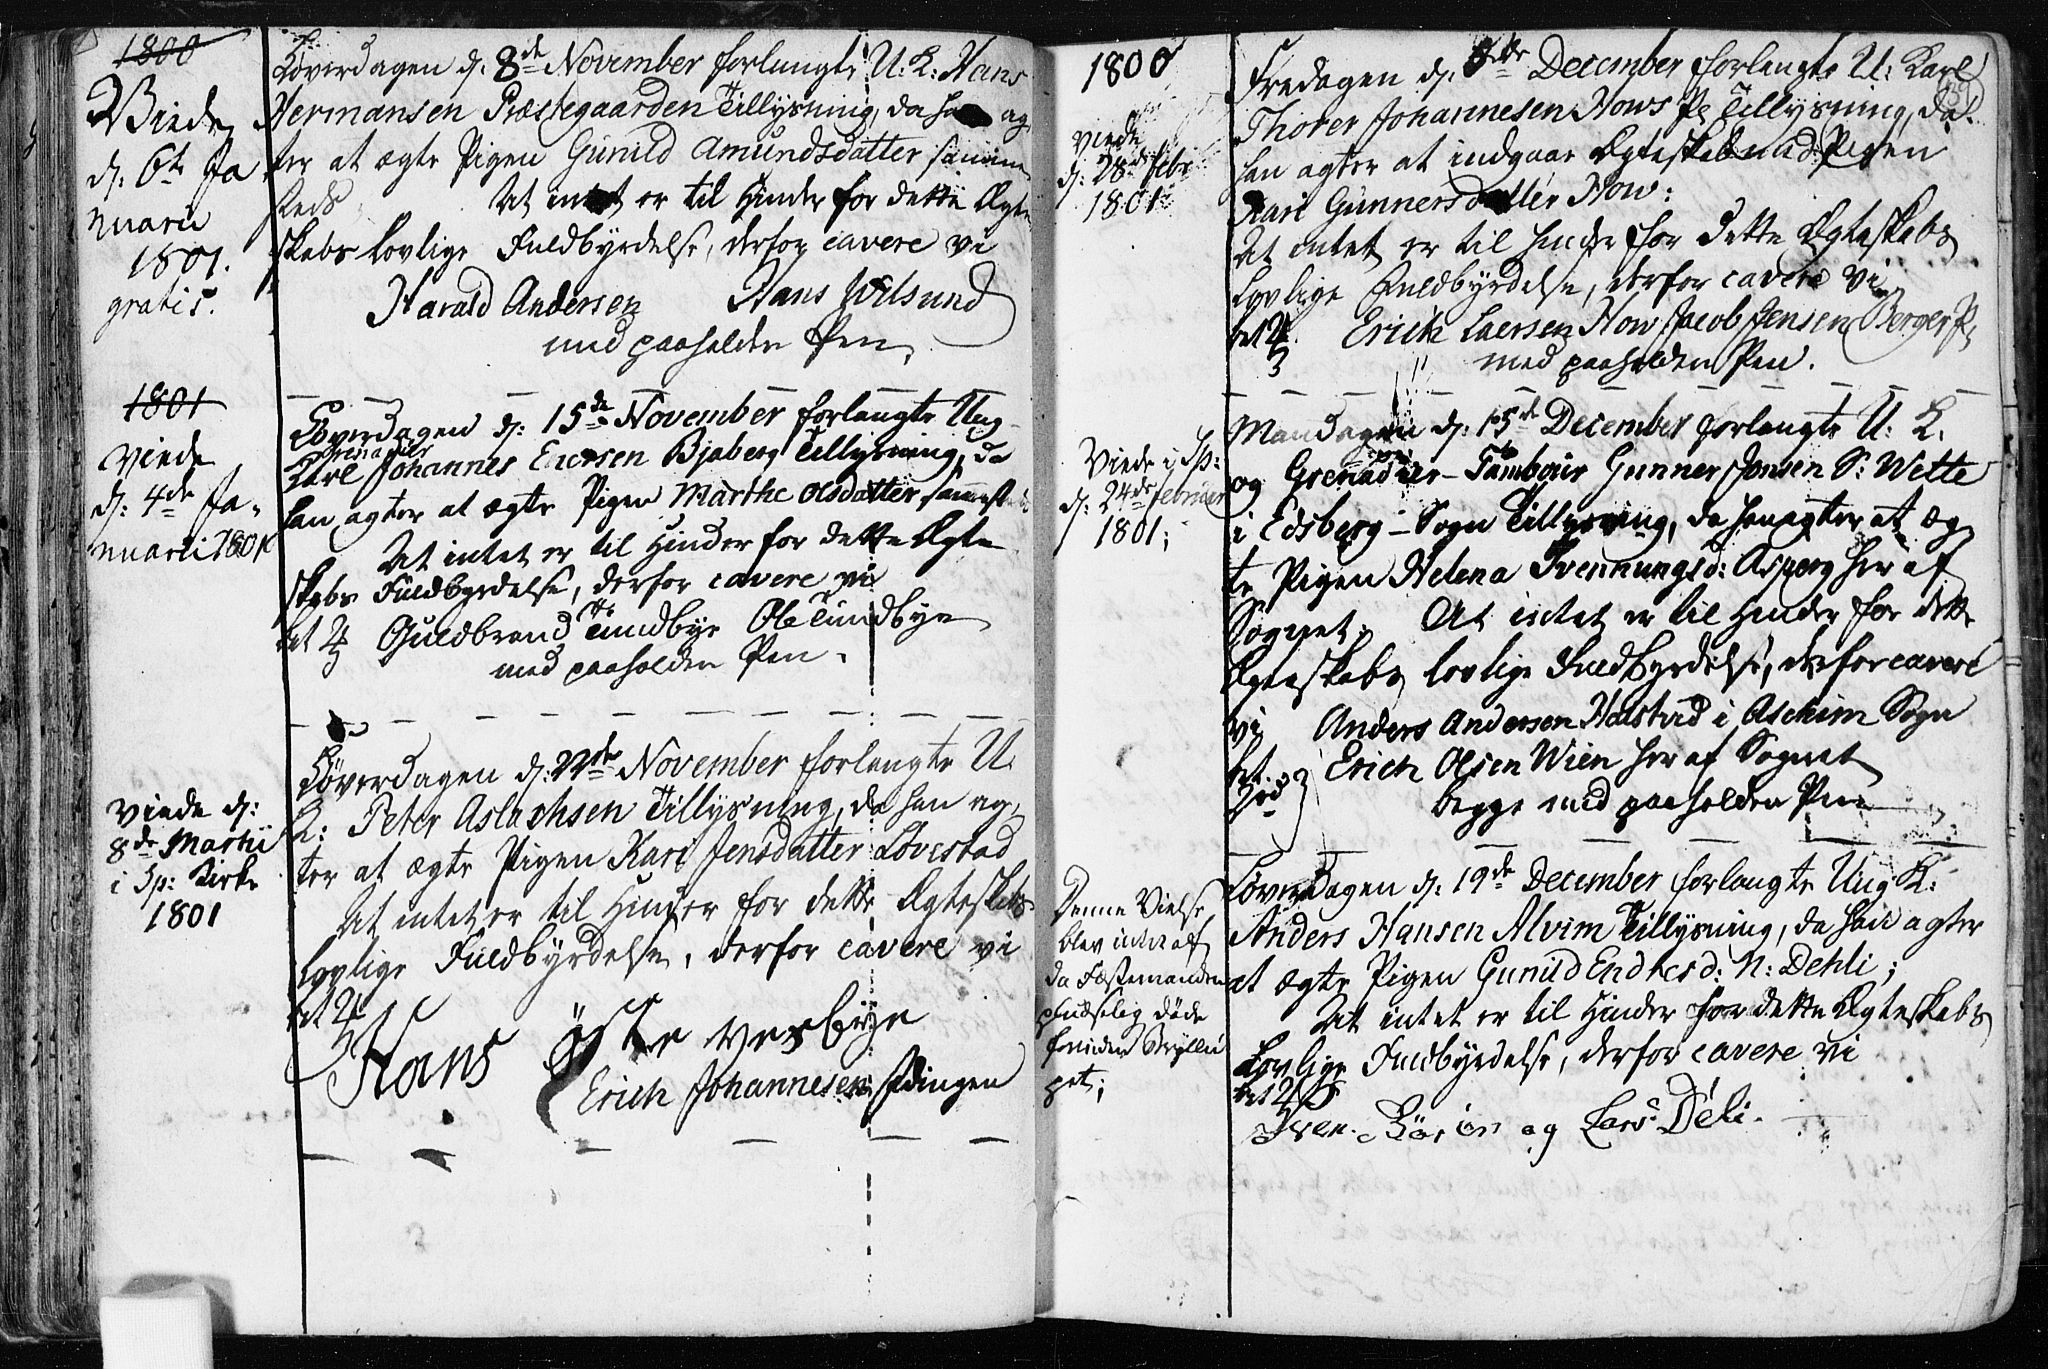 1800
Viede
d: 6te Ja
nuarii
1801.
gratis.
Løverdagen d: 8de November forlangte U: K: Hans
Hermansen Præstegaarden Tillysning, da han ag
ter at ægte Pigen Gunild Amundsdatter samme
steds At intet er til Hinder for dette Ægte
skabs lovlige Fuldbyrdelse, derfor cavere vi
Harald Andersen Hans Wilsund
med paaholden Pen.
1801
Viede
d: 4de Ja-
nuarii 1801
Løverdagen d: 15de November forlangte Ung
Grenadeer
Karl Johannes Ericsen Bjaberg Tillysning, da
han agter at ægte Pigen Marthe Olsdatter sammest
At intet er til Hinder for dette Ægte
skabs Fuldbyrdelse, derfor cavere vi
bet Guldbrand Tundbye Ole Tundbye
med paaholden Pen.
Viede d:
8de Martii
i Sp: Kirke
1801
Løverdagen d: 22de November forlangte U:
K: Peter Aslachsen Tillysning, da han ag-
ter at ægte Pigen Kari Jensdatter Løvestad
At intet er til Hinder for dette Ægteskabs
lovlige Fuldbyrdelse, derfor cavere vi
bet
Hans Østre Wesbÿe
Erich Johannesen Edingen
1800
139
Viede
d: 28de Febr
1801
Fredagen d: December forlangte U: Karl
Thorer Johannesen Hows Pl Tillysning, da
han agter at indgaae Ægteskab med Pigen
Kari Gunnersdatter How:
At intet er til Hinder for dette Ægteskabs
lovlige Fuldbyrdelse, derfor cavere vi
bet Erich Laersen How Jacob Jensen Berger Pl
med paaholden Pen.
Viede i Sp:
d: 24de Februar
1801;
Mandagen d: 15de December forlangte U: K:
og Grenadeer-Tambour Gunner Jonsen S: Wette
i Edsberg-Sogn Tillysning, da han agter at æg
te Pigen Helena Svennungsd: Asperg her af
Sognet; At intet er til Hinder for dette
Ægteskabs lovlige Fuldbyrdelse, derfor cavere
vi Anders Andersen Halstvid i Aschim Sogn
bet. Erich Olsen Wien her af Sognet
begge med paaholden Pen
Denne Vielse
blev intet af
da Fæstemanden
pludselig døde
forinden Bryllu
pet;
Løverdagen d: 19de December forlangte Ung K:
Anders Hansen Alvim Tillysning, da han agter
at ægte Pigen Gunild Endresd: N: Dehli;
At intet er til Hinder for dette Ægteskabs
Lovlige Fuldbyrdelse, derfor cavere vi
bet
Iver og Lars Deli.